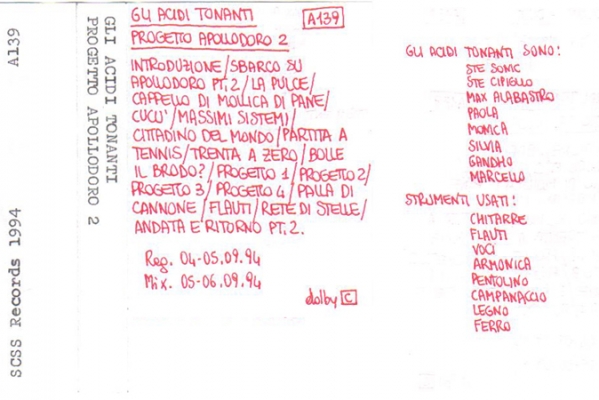 SCSS Records 1994 A139
GLI ACIDI TONANTI
PROGETTO APOLLODORO 2
GLI ACIDI TONANTI A139
PROGETTO APOLLODORO 2
INTRODUZIONE/SBARCO SU
APOLLODORO PT.2/LA PULCE/
CAPPELLO DI MOLLICA DI PANE/
CUCU'/MASSIMI SISTEMI/
CITTADINO DEL MONDO/PARTITA A
TENNIS/TRENTA A ZERO/BOLLE
IL BRODO?/PROGETTO 1/PROGETTO 2/
PROGETTO 3/PROGETTO 4/PALLA DI
CANNONE/FLAUTI/RETE DI STELLE/
ANDATA E RITORNO PT.2.
Reg. 04-05.09.94
Mix. 05-06.09.94
dolby C
GLI ACIDI TONANTI SONO:
STE SONIC
STE CIPIELLO
MAX ALABASTRO
PAOLA
MONICA
SILVIA
GANDHO
MARCELLO
STRUMENTI USATI:
CHITARRE
FLAUTI
VOCI
ARMONICA
PENTOLINO
CAMPANACCIO
LEGNO
FERRO